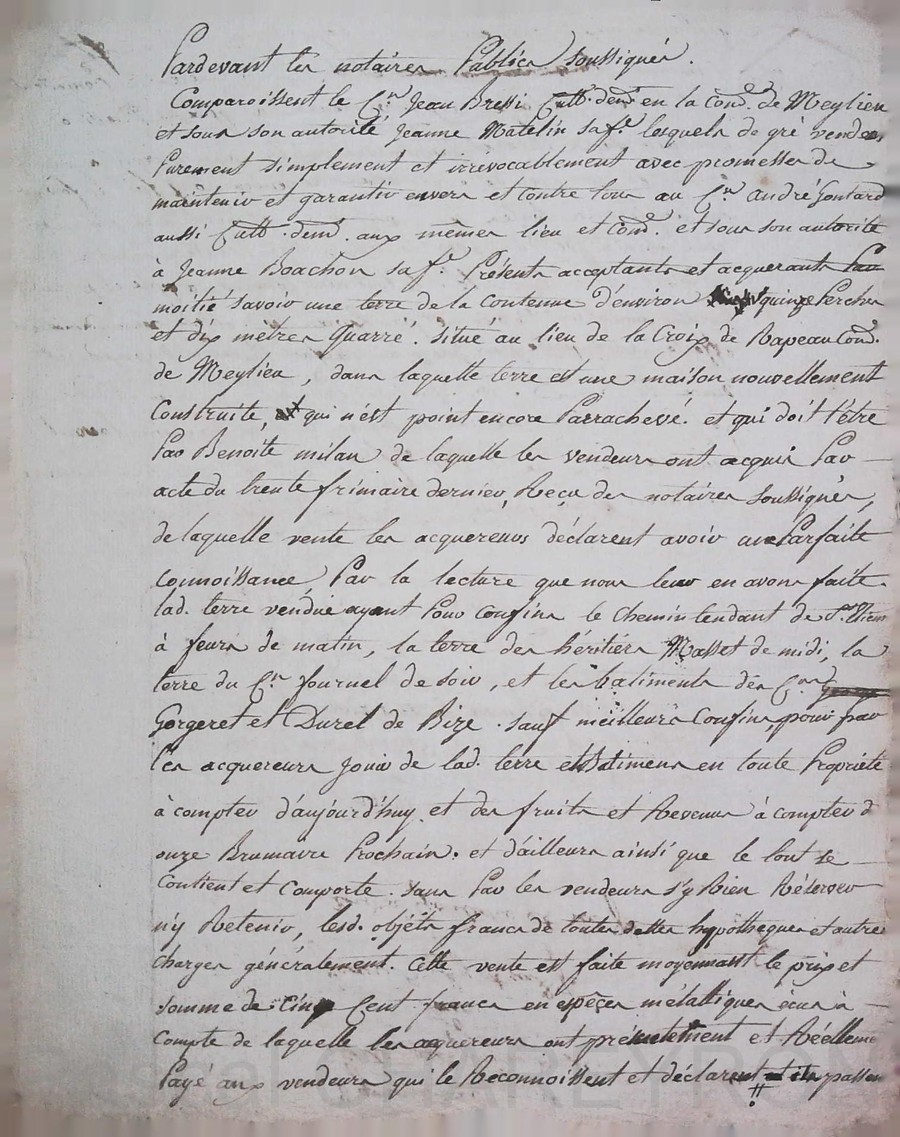 Pardevant les notaires Publics soussignés.
Comparoissent le C.en Jean Bressi Cult. dem.t en la Com.e de Meylieu
et sous son autorité Jeanne Matelin sa f.e lesquels de gré vendent
Purement simplement et irrévocablement avec promesse de
maintenir et garantir envers et contre tous au C.en André Gontard
aussi Cult. dem.t aux mêmes lieu et Com.e et sous son autorité
à Jeanne Boachon sa f.e Présents acceptants et acquerants Par
moitié savoir une terre de la Contenue d'environ quinze Perches
et dix mètres Quarré. situé au lieu de la Croix de Rapeau Com.e
de Meylieu, dans laquelle terre est une maison nouvellement
Construite, qui n'est point encore Parrachevé. et qui doit l'être
Par Benoite milan de laquelle les vendeurs ont acquis Par
acte du trente frimaire dernier, Reçu des notaires Soussignés,
de laquelle vente les acquereurs déclarent avoir une Parfaite
Connoissance Par la lecture que nous leur en avons faite
lad. terre vendue ayant Pour Confins le chemin tendant de S.t Etienne
à feurs de matin, la terre des héritiers Masset de midi, la
terre du C.en fournel de soir, et les batiments des C.ens
Gorgeret et Durel de Bize. sauf meilleurs Confins, pour par
les acquereurs jouir de lad. terre et Batimens en toute Propriété
à compter d'aujourd'huy et des fruits et Revenus à compter d
onze Brumaire Prochain. et d'ailleurs ainsi que le tout se
Contient et Comporte. sans Par les vendeurs s'y Rien Réserver
n'y Retenir, lesd. objets francs de toutes dettes hypotheques et autres
charges généralement. Cette vente est faite moyennant le prix et
somme de Cinq Cent francs en espèces métalliques écus à
Compte de laquelle les acquereurs ont présentement et Réellement
Payé aux vendeurs qui le Reconnoissent et déclarent passen